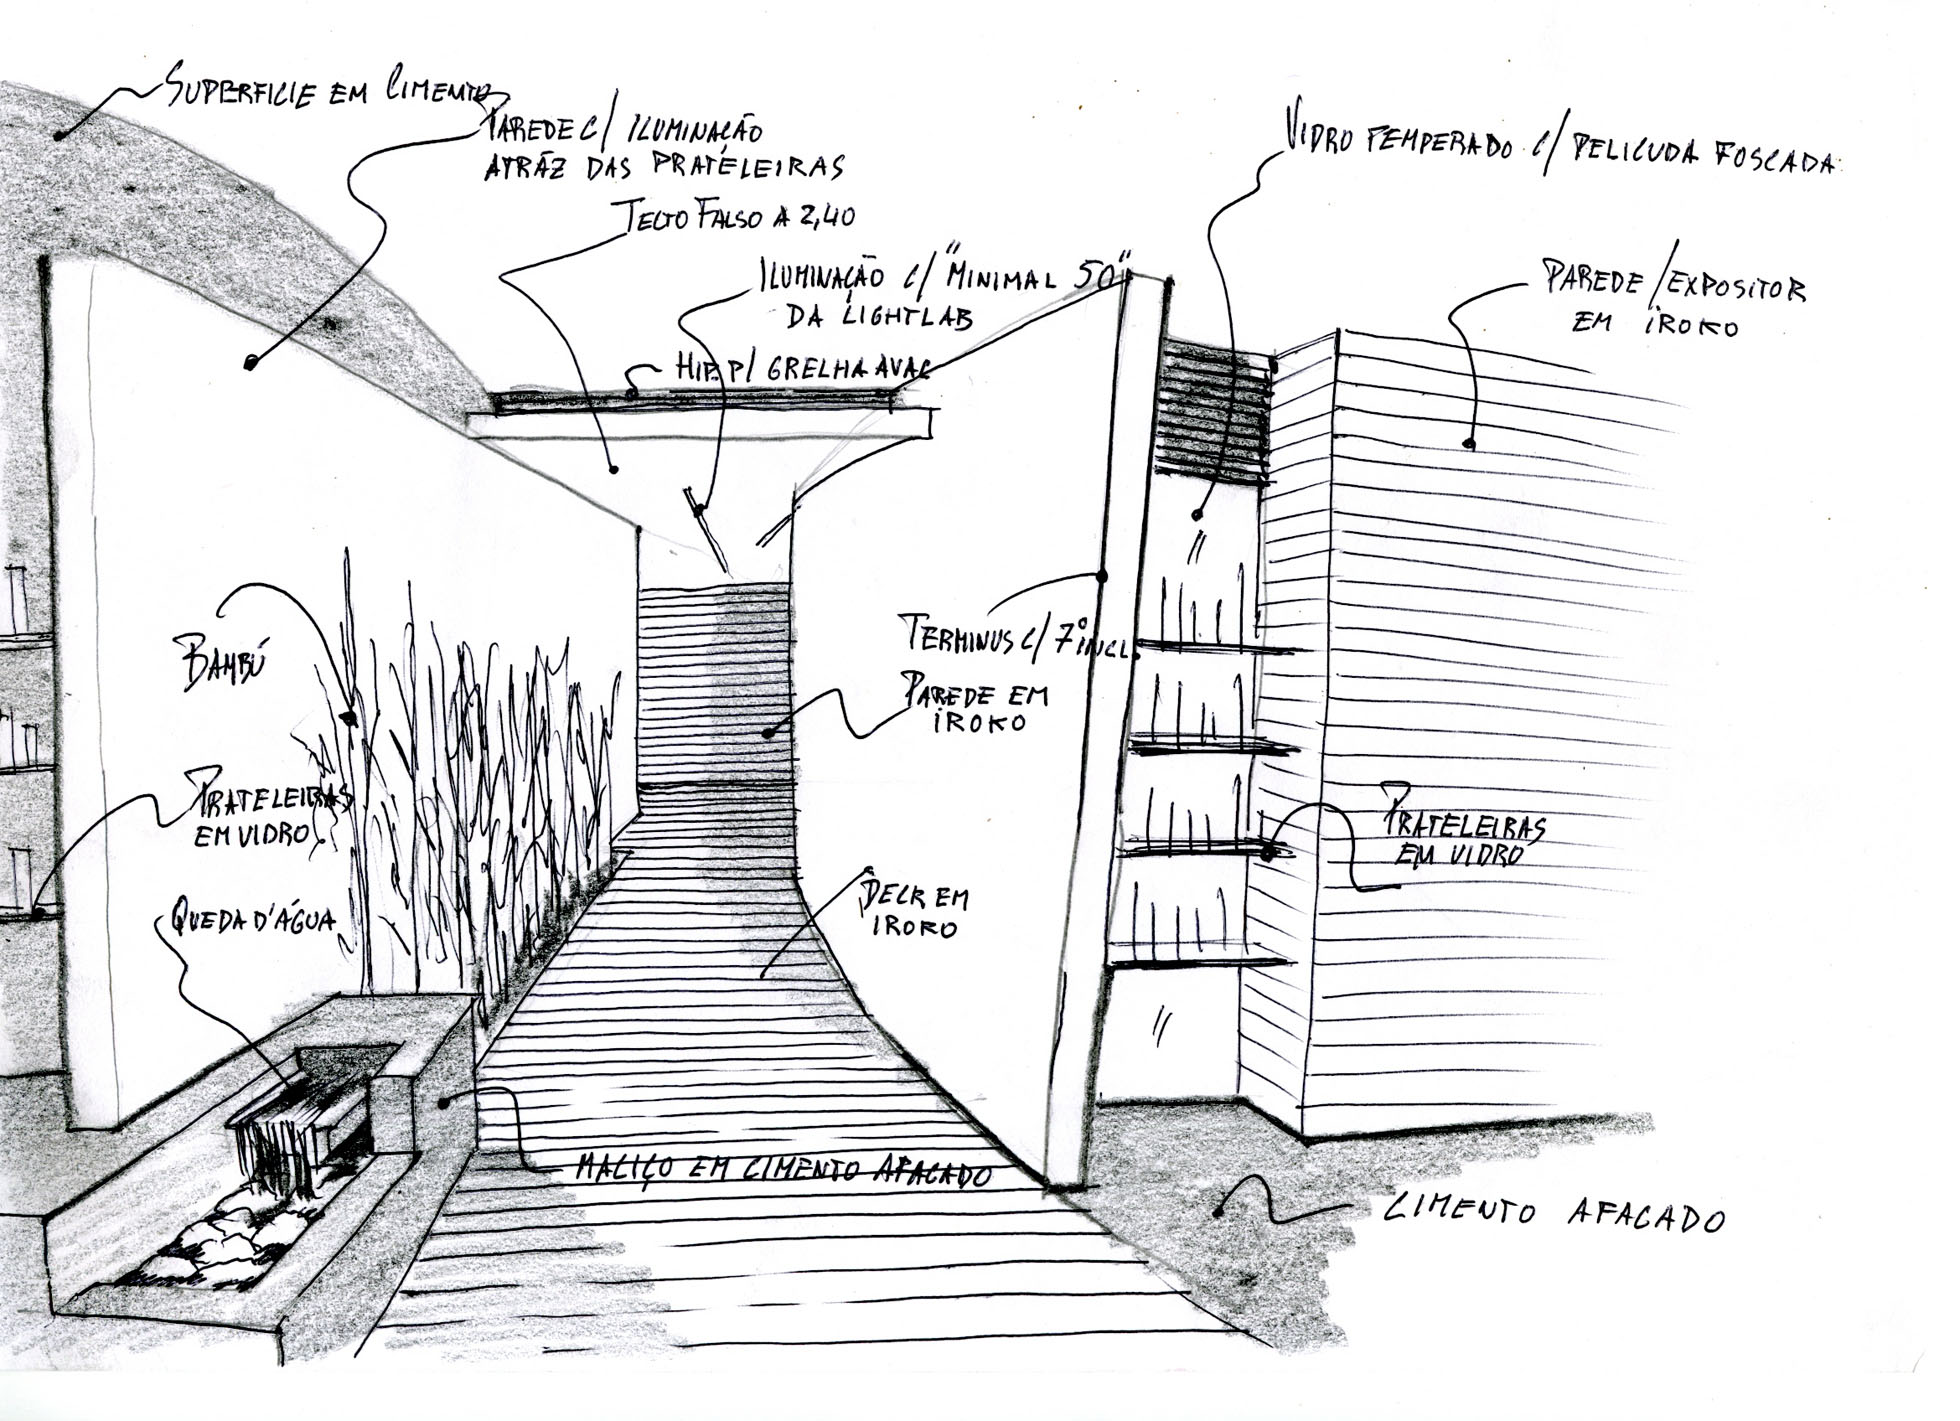 SUPERFICIE EM CIMENTO
PAREDE C/ ILUMINAÇÃO
ATRÁZ DAS PRATELEIRAS
TECTO FALSO A 2,40
ILUMINAÇÃO C/ "MINIMAL 50"
DA LIGHTLAB
HIP. P/ GRELHA AVAC
VIDRO TEMPERADO C/ PELICUDA FOSCADA
PAREDE/EXPOSITOR
EM IROKO
BAMBÚ
TERMINUS C/ 7º INCL.
PAREDE EM
IROKO
PRATELEIRAS
EM VIDRO
PRATELEIRAS
EM VIDRO
QUEDA D'ÁGUA
DECK EM
IROKO
MACIÇO EM CIMENTO AFAGADO
CIMENTO AFAGADO